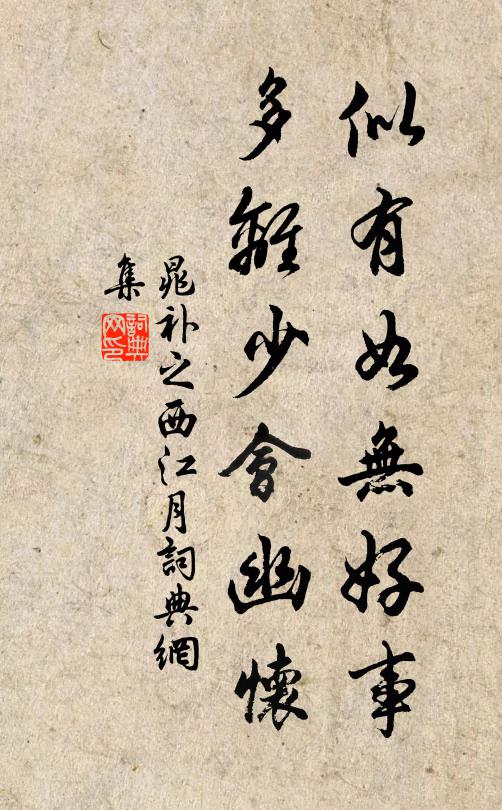 似有如無好事
多離少會幽懷
晁补之西江月詞典網
集
詞典
网印